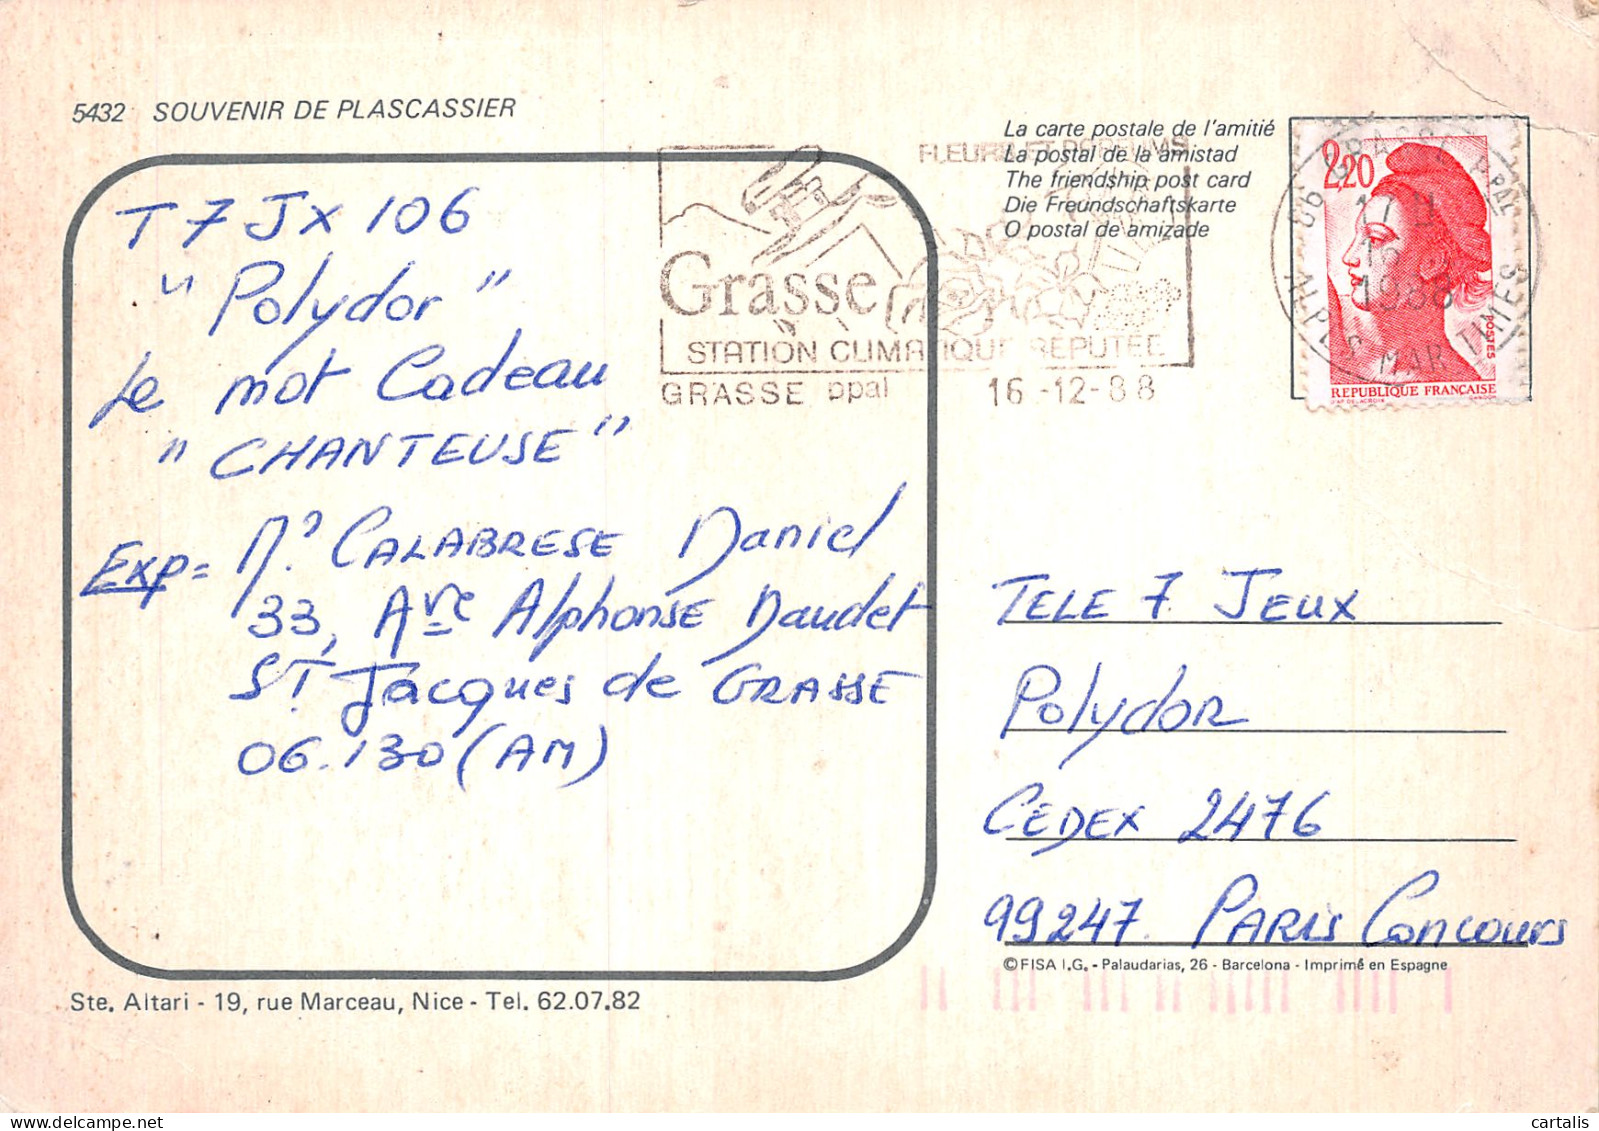 5432 SOUVENIR DE PLASCASSIER
T 7 JX 106
"Polydor"
Le mot Cadeau
"CHANTEUSE"
Exp= Mr. CALABRESE Daniel
33, Ave Alphonse Daudet
ST Jacques de GRASSE
06.130 (AM)
Ste. Altari - 19, rue Marceau, Nice - Tel. 62.07.82
FLEURS ET PARFUMS
Grasse
STATION CLIMATIQUE REPUTEE
GRASSE ppal 16-12-88
La carte postale de l'amitié
La postal de la amistad
The friendship post card
Die Freundschaftskarte
O postal de amizade
2,20
POSTES
REPUBLIQUE FRANÇAISE
06 GRASSE PPAL
16
1988
ALPES MARITIMES
TELE 7 JEUX
Polydor
CEDEX 2476
99247. PARIS Concours
©FISA I.G. - Palaudarias, 26 - Barcelona - Imprimé en Espagne
cartalis